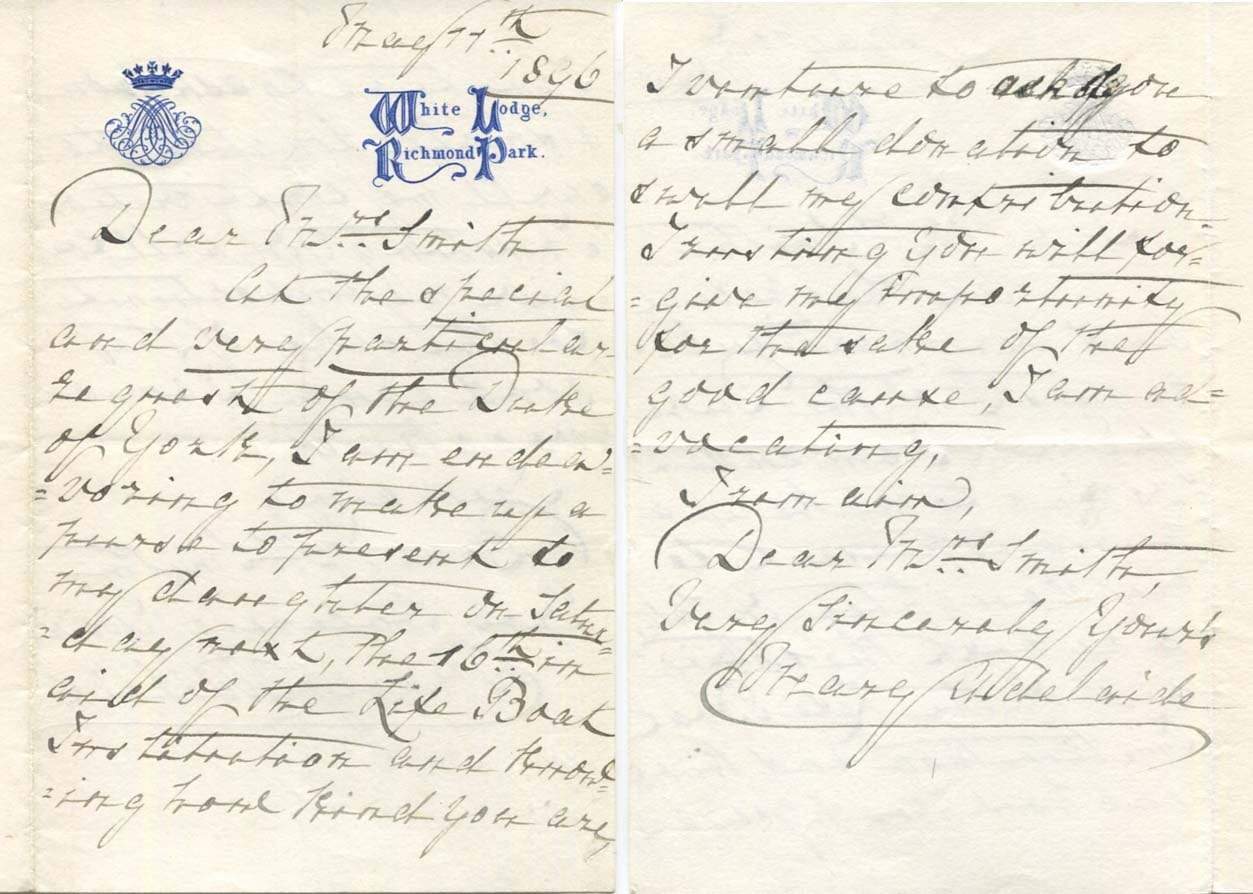 May 11th
1896
White Lodge,
Richmond Park.
Dear Mrs Smith
At the special
and very particular
request of the Duke
of York, I am endea=
=voring to make up a
purse to present to
my daughter on Satur=
=day next, the 16th in
aid of the Life Boat
Institution and know=
=ing how kind you are,
I venture to ask you
a small donation to
swell my contribution.
Trusting you will for=
=give my importunity
for the sake of the
good cause, I am ad=
=vocating,
I remain,
Dear Mrs Smith,
Very Sincerely Yours
Mary Adelaide